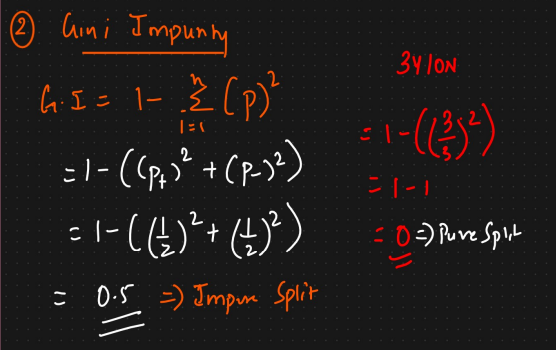 ② Gini Impurity
G.I = 1 - n Σ i=1 (p)²
= 1 - ((p+)² + (p-)²)
= 1 - ((1/2)² + (1/2)²)
= 0.5 => Impure Split
3Y/0N
= 1 - ((3/3)²)
= 1 - 1
= 0 => Pure Split